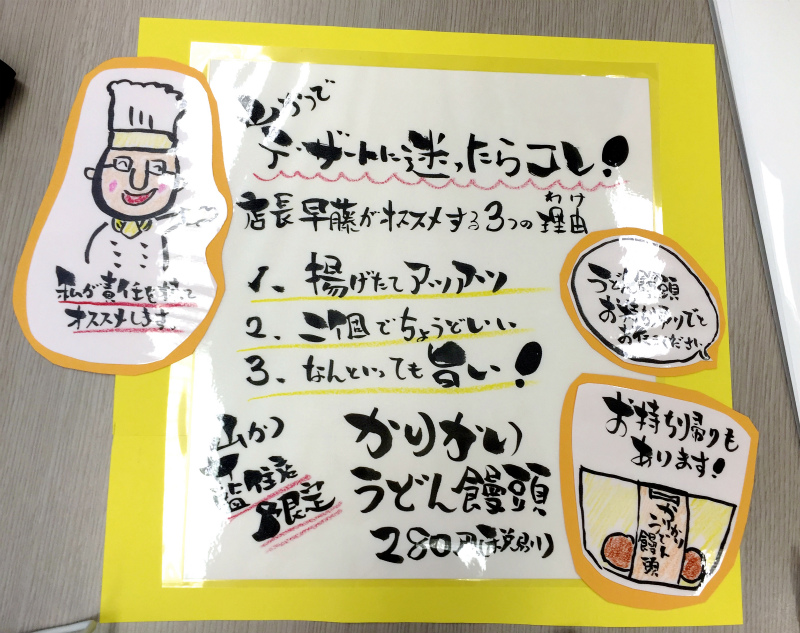 山かつで
デザートに迷ったらコレ!
店長早藤がオススメする3つの理由
わけ
1、揚げたてアツアツ
2、二個でちょうどいい
3、なんといっても旨い!
山かつ
限定
かりかり
うどん饅頭
280円(税別)
私が責任を持って
オススメします。
うどん饅頭
お持ちアリでと
お伝えください
お持ち帰りも
あります!
かりかり
うどん饅頭